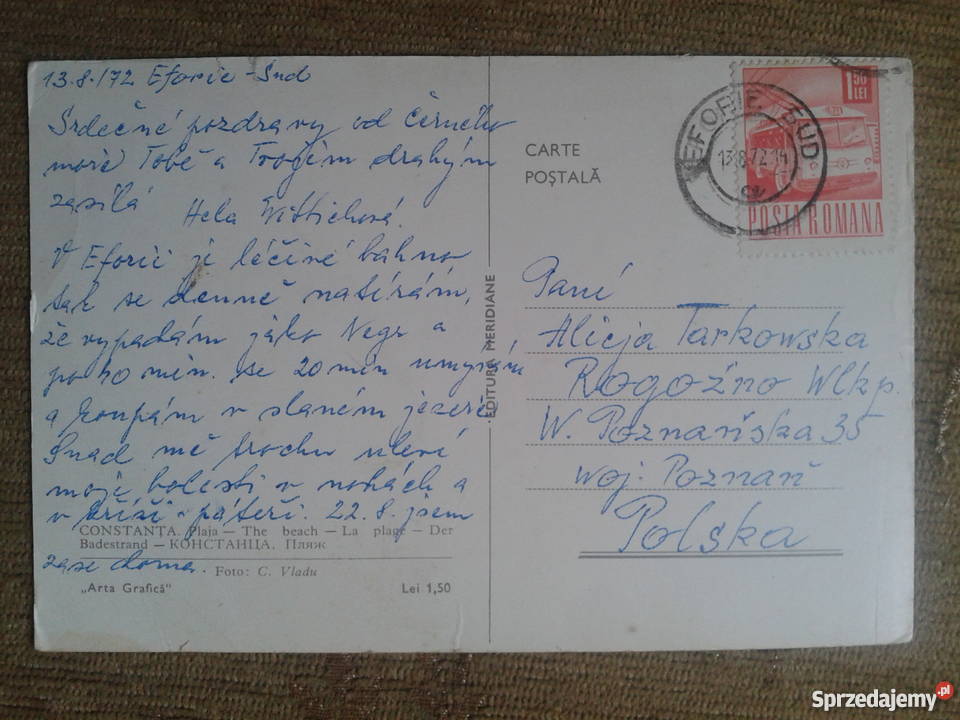 13.8./72 Eforie-Sud
Srdečné pozdravy od Černého
moře Tobě a Tvojim drahým
zasílá Hela Wittichová.
V Eforii je léčivé bahno
tak se denně natírám,
že vypadám jako Negr a
po 10 min. se 20 min umyvám
a koupám v slaném jezeře.
Snad mě trochu uleví
moji bolesti v nohách a
v kříži-páteři. 22.8. jsem
zase doma.
CONSTANȚA. Plaja — The beach — La plage — Der
Badestrand — КОНСТАНЦА. Пляж
Foto: C. Vladu
„Arta Grafică"
Lei 1,50
EDITURA MERIDIANE
CARTE
POȘTALĂ
1,50
LEI
POSTA ROMANA
EFORIE SUD
13.8.72.14
Pani
Alicja Tarkowska
Rogoźno Wlkp.
W. Poznańska 35
woj. Poznań
Polska
Sprzedajemy.pl